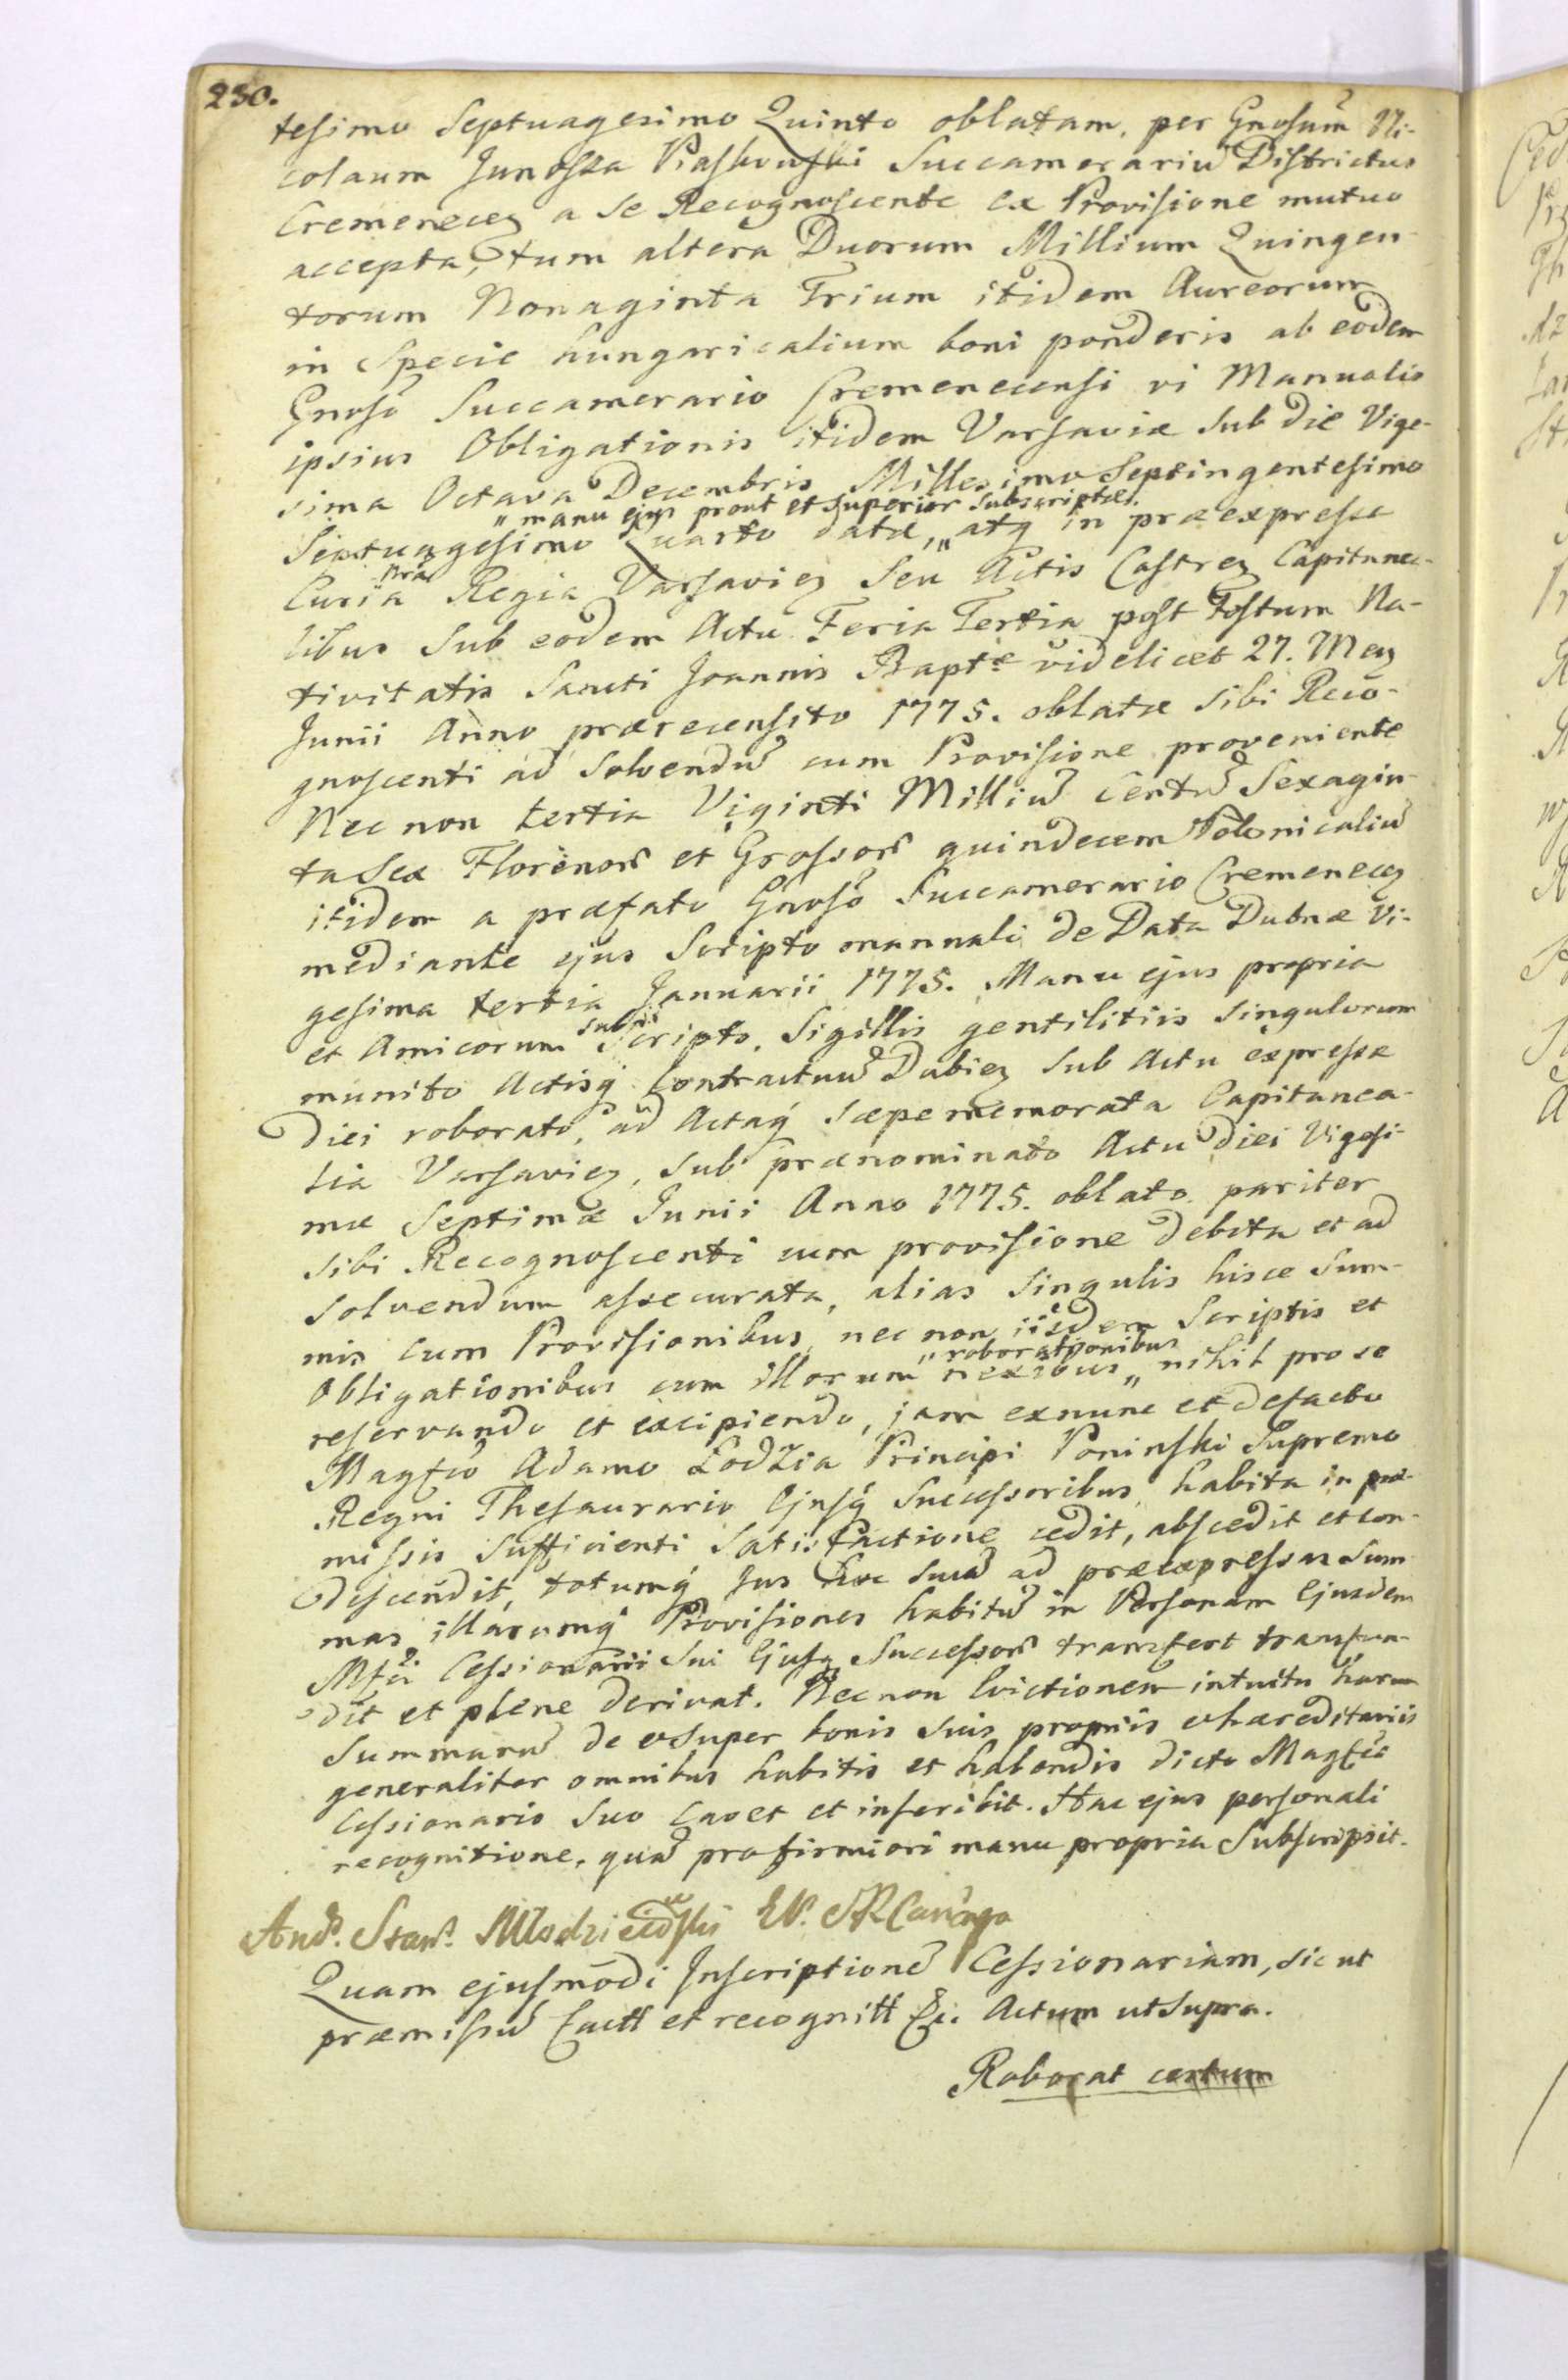 230.
tesimo Septuagesimo Quinto oblatam, per Gnosum Ni-
colaum Junosza Piaskowski Succamerariu Districtus
Cremenecen a se Recognoscente ex Provisione mutuo
accepta, tum altera Duorum Millium Quingen-
torum Nonaginta Trium itidem Aureorum
in Specie hungaricalium boni ponderis ab eodem
Gnoso Succamerario Cremenecensi vi Manualis
ipsius Obligationis itidem Varsaviæ sub die Vige-
sima Octava Decembris Millesimo Septingentesimo
„manu ejus prout et superior subscriptæ.
Septuagesimo Quarto datæ, „ atq in præexpressa
nra
Curia Regia Varsavien seu Actis Castren Capitanea-
libus sub eodem Actu Feria Tertia post Festum Na-
tivitatis Sancti Joannis Baptæ videlicet 27. Men
Junii Anno prærecensito 1775. oblatæ sibi Reco-
gnoscenti ad solvendu cum Provisione proveniente
Nec non tertia Viginti Milliu Centu Sexagin-
ta Sex Florenor et Grossor quindecem Polonicaliu
itidem a præfato Gnoso Succamerario Cremenecen
mediante ejus Scripto manuali de Data Dubnæ Vi-
gesima tertia Januarii 1775. Manu ejus propria
sub
et Amicorum Scripto, Sigillis gentilitiis singulorum
munito Actisq Contractuu Dubien sub Actu expressæ
Diei roborato, ad Actaq sæpememorata Capitanea-
lia Varsavien, sub prænominato Actu diei Vigesi-
mæ Septimæ Junii Anno 1775. oblato pariter
sibi Recognoscenti cum provisione debita et ad
solvendum assecurata, alias singulis hisce Sum-
mis cum Provisionibus, nec non iisdem Scriptis et
„roborationibus
Obligationibus cum illorum nexibus „ nihil pro se
reservando et excipiendo, jam exnunc et defacto
Magfco Adamo Łodzia Principi Poninski Supremo
Regni Thesaurario Ejusq Successoribus, habita in præ-
missis sufficienti satisfactione cedit, abscedit et con-
descendit, totumq Jus suu ad præexpressas Sum-
mas illarumq Provisiones habitu in Personam Ejusdem
Mfci Cessionarii sui Ejusq Successor transfert transfun-
dit et plene derivat. Necnon Evictionem intuitu harum
Summaru de et super bonis suis propriis et hæreditariis
generaliter omnibus habitis et habendis dicto Magfco
Cessionario suo cavet et inscribit. Hac ejus personali
recognitione, qua pro firmiori manu propria Subscripsit.
And. Stan. Młodzieiowski
Quam ejusmodi Inscriptione Cessionariam, sic ut
præmissu et recognitt Actum ut supra.
Roborat certum